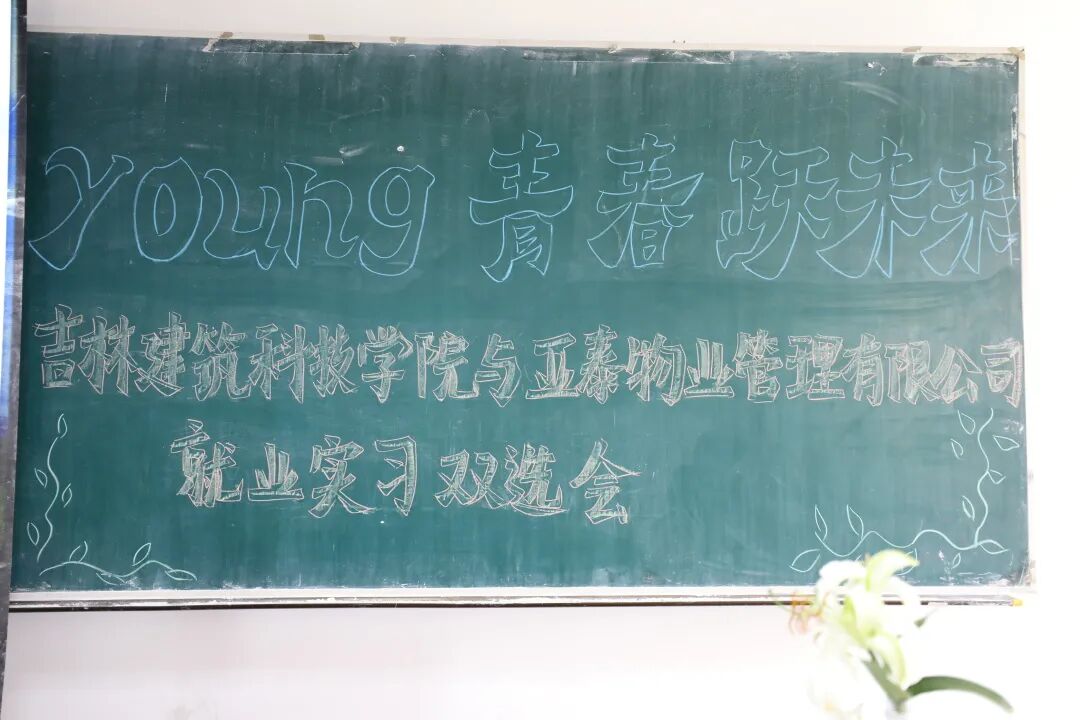 young 青春跃未来
吉林建筑科技学院与亚泰物业管理有限公司
就业实习双选会